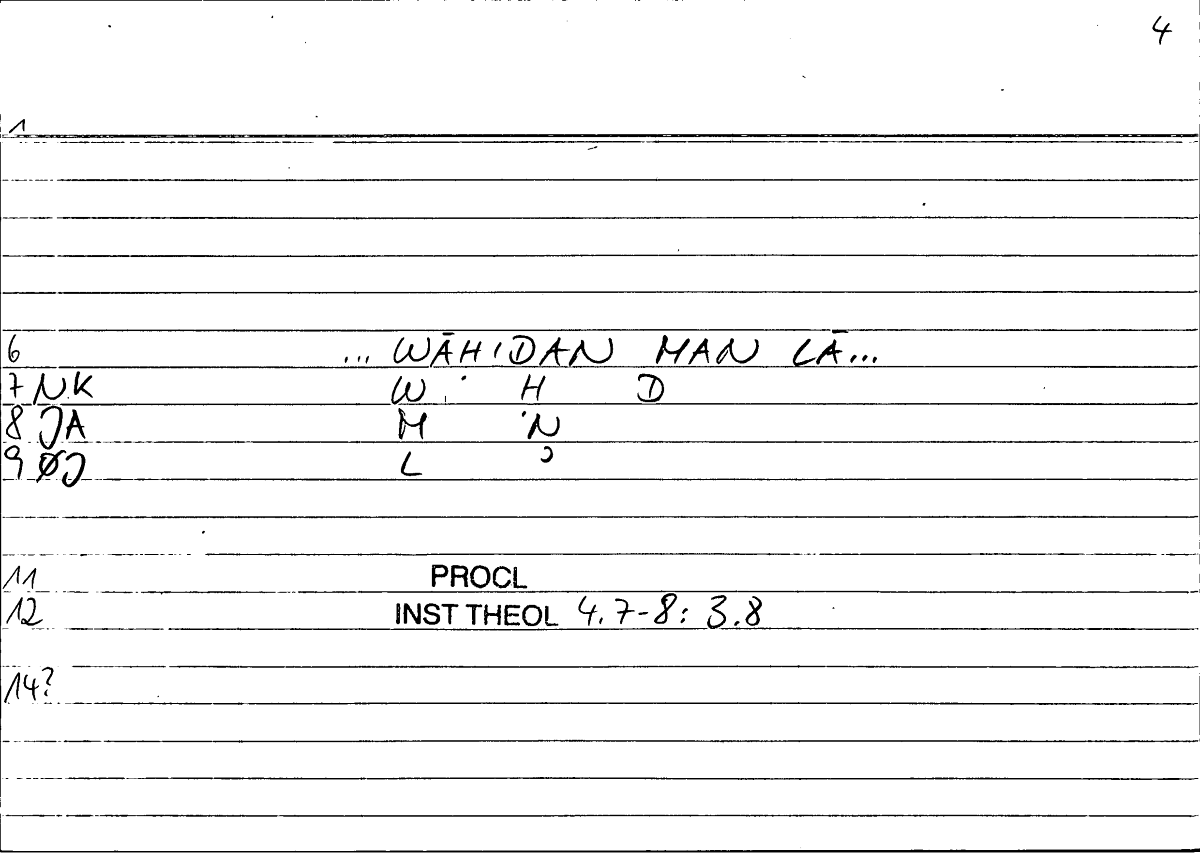 4
1
6 ... WĀHIDAN MAN LĀ...
7 NK W H D
8 JA M N
9 ØJ L ʾ
11 PROCL
12 INST THEOL 4.7-8: 3.8
14?